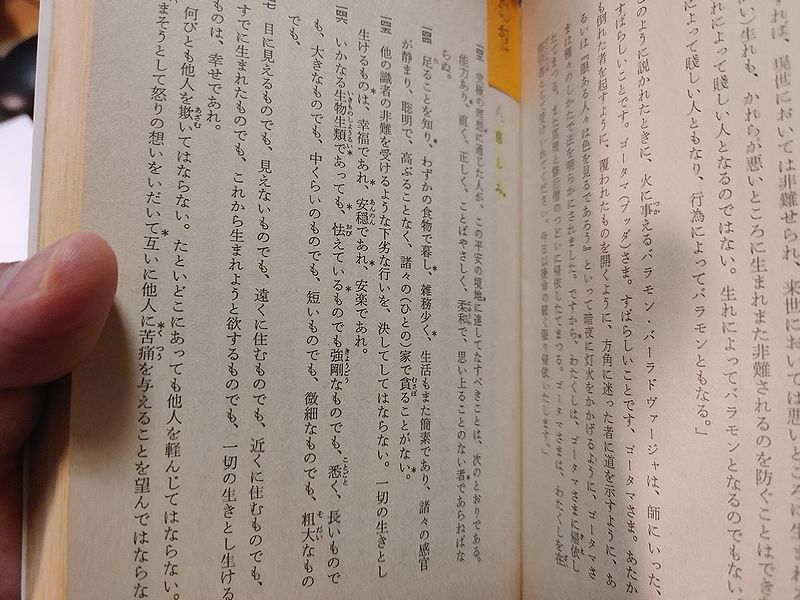 れば、現世においては非難せられ、来世においては悪いところに生まれる
い)生れも、かれらが悪いところに生まれまた非難されるのを防ぐことはでき
によって賤しい人となるのではない。生れによってバラモンとなるのでもない。
によって賤しい人ともなり、行為によってバラモンともなる。」
このように説かれたときに、火に事えるバラモン・バーラドヴァージャは、師にいった、
すばらしいことです。ゴータマ(ブッダ)さま。すばらしいことです、ゴータマさま。あたか
も倒れた者を起すように、覆われたものを開くように、方角に迷った者に道を示すように、あ
るいは『眼ある人々は色を見るであろう』といって暗夜に灯火をかかげるように、ゴータマさ
まは種々のしかたで法を明らかにされました。ですから、わたくしは、ゴータマさまに帰依し
たてまつる。また真理と修行僧のつどいに帰依したてまつる。ゴータマさまは、わたくしを在
として受けいれてください。今日以後命の続く限り帰依いたします。」
慈しみ
一四三 究極の理想に通じた人が、この平安の境地に達してなすべきことは、次のとおりである。
能力あり、直く、正しく、ことばやさしく、柔和で、思い上ることのない者であらねばな
らぬ。
一四四 足ることを知り、わずかの食物で暮し、雑務少く、生活もまた簡素であり、諸々の感官
が静まり、聡明で、高ぶることなく、諸々の(ひとの)家で貪ることがない。
一四五 他の識者の非難を受けるような下劣な行いを、決してしてはならない。一切の生きとし
生けるものは、幸福であれ、安穏であれ、安楽であれ。
一四六 いかなる生物生類であっても、怯えているものでも強剛なものでも、悉く、長いもので
も、大きなものでも、中くらいのものでも、短いものでも、微細なものでも、粗大なもの
でも、
目に見えるものでも、見えないものでも、遠くに住むものでも、近くに住むものでも、
すでに生まれたものでも、これから生まれようと欲するものでも、一切の生きとし生ける
ものは、幸せであれ。
何びとも他人を欺いてはならない。たといどこにあっても他人を軽んじてはならない。
まそうとして怒りの想いをいだいて互いに他人に苦痛を与えることを望んではならな